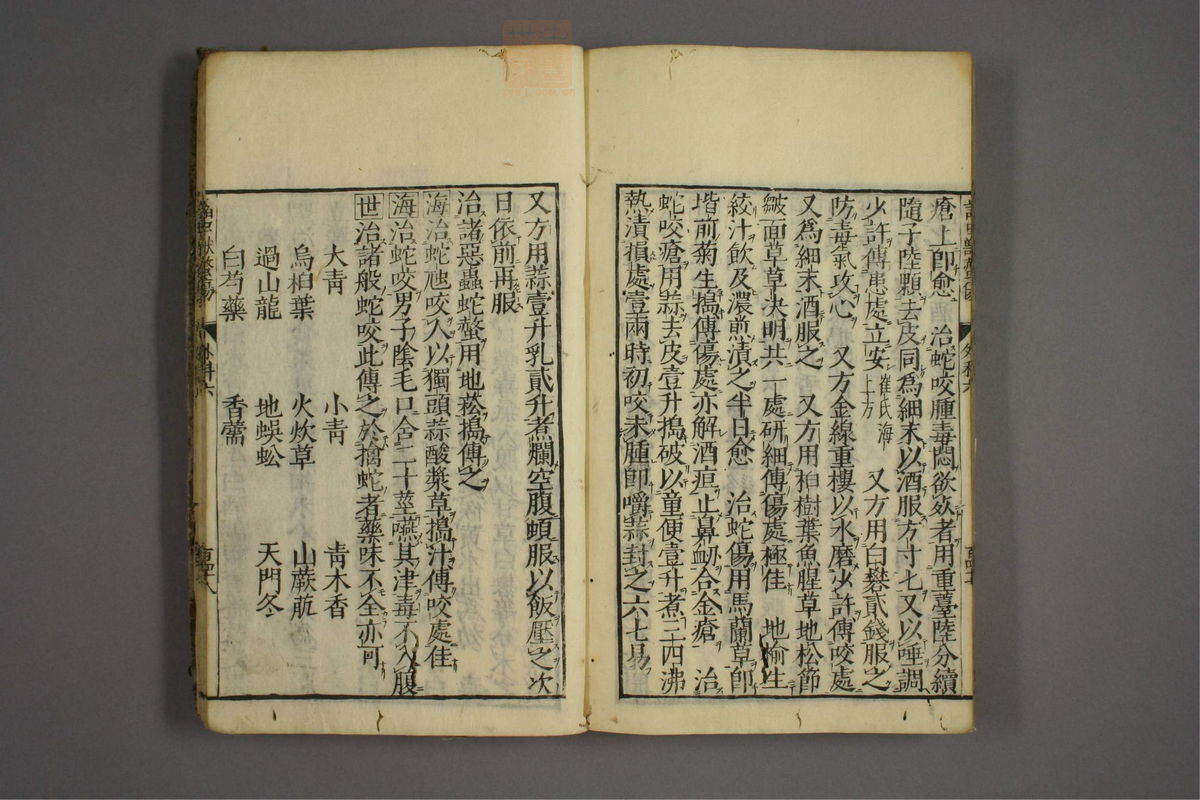 瘡上即愈 治蛇咬腫毒悶欲死者用重薹陸分續
隨子陸顆去皮同爲細末以酒服方寸七又以唾調
少許傅患處立安 崔氏海上方 又方用白礬貳錢服之
防毒氣攻心 又方金線重樓以水磨少許傅咬處
又爲細末酒服之 又方用柏樹葉魚腥草地松節
皺面草草決明共一處研細傅傷處極佳 地榆生
絞汁飲及濃煎漬之半日愈 治蛇傷用馬蘭草即
堦前菊生搗傅傷處亦解酒疸止鼻衂合金瘡 治
蛇咬瘡用蒜去皮壹升搗破以童便壹升煮三四沸
熱漬損處壹兩時初咬未腫即嚼蒜封之六七易
又方用蒜壹升乳貳升煮爛空腹頓服以飯壓之次
日依前再服
治諸惡蟲蛇螫用地菘搗傅之
海治蛇虺咬人以獨頭蒜酸漿草搗汁傅咬處佳
海治蛇咬男子陰毛口含二十莖嚥其津毒不入腹
世治諸般蛇咬此傅之於擒蛇者藥味不全亦可
大靑 小靑 靑木香
烏桕葉 火炊草 山蕨𦫵
過山龍 地蜈蚣 天門冬
白芍藥 香薷
外科六